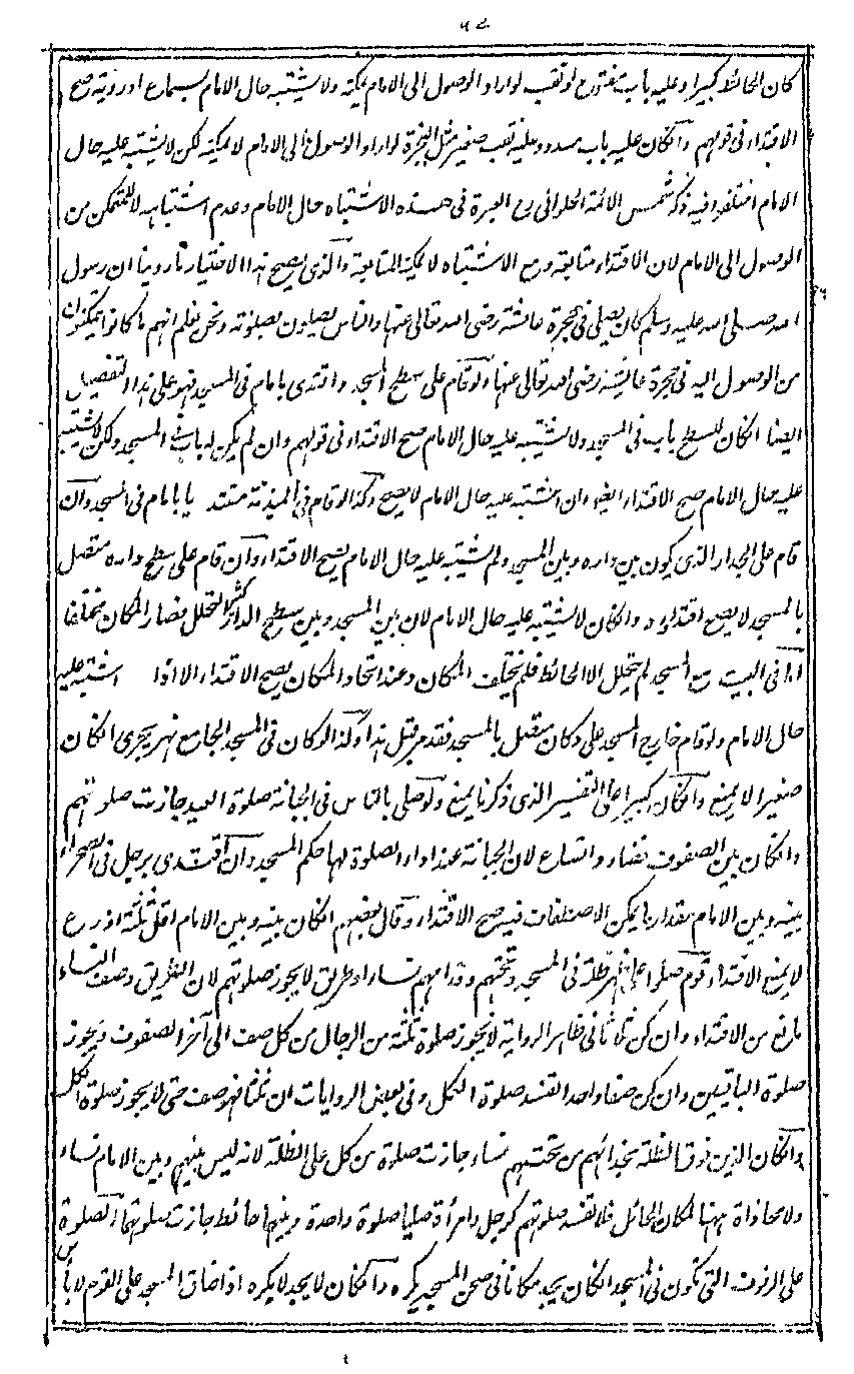 كان الحائط كبيرا وعليه باب مفتوح او ثقب لو اراد الوصول الى الامام يمكنه ولا يشتبه حال الامام بسماع او روية صح
الاقتداء فى قولهم وانكان عليه باب مسدود وعليه ثقب صغير مثل البنجرة لو اراد الوصول الى الامام لا يمكنه لكن لا يشتبه عليه حال
الامام اختلفوا فيه ذكر شمس الائمة الحلوانى رح العبرة فى هذه الاشتباه حال الامام وعدم اشتباهه لا للتمكن من
الوصول الى الامام لان الاقتداء متابعة ومع الاشتباه لا يمكنه المتابعة والذى يصحح هذا الاختيار ما روينا ان رسول
الله صلى الله عليه وسلم كان يصلى فى حجرة عائشة رضى الله تعالى عنها والناس يصلون بصلوته ونحن نعلم انهم ما كانوا يتمكنون
من الوصول اليه فى حجرة عائشة رضى الله تعالى عنها ولو قام على سطح المسجد واقتدى بامام فى المسجد فهو على هذا التفصيل
ايضا انكان للسطح باب فى المسجد ولا يشتبه عليه حال الامام صح الاقتداء فى قولهم وان لم يكن له باب فى المسجد ولكن لا يشتبه
عليه حال الامام صح الاقتداء ايضا وان اشتبه عليه حال الامام لا يصح وكذا لو قام فى الميذنة مقتديا بامام فى المسجد وان
قام على الجدار الذى يكون بين داره وبين المسجد ولم يشتبه عليه حال الامام يصح الاقتداء وان قام على سطح داره متصل
بالمسجد لا يصح اقتداؤه وانكان لا يشتبه عليه حال الامام لان بين المسجد وبين سطح الدار كثير التخلل فصار المكان مختلفا
اما فى البيت مع المسجد لم يتخلل الا الحائط فلم يختلف المكان وعند اتحاد المكان يصح الاقتداء الا اذا اشتبه عليه
حال الامام ولو قام خارج المسجد على دكان متصل بالمسجد فقد مر قبل هذا وكذا لو كان فى المسجد الجامع نهر يجرى انكان
صغيرا لا يمنع وانكان كبيرا على التفسير الذى ذكرنا يمنع ولو صلى بالناس فى الجبانة صلوة العيد جازت صلوتهم
وانكان بين الصفوف فضاء واتساع لان الجبانة عند اداء الصلوة لها حكم المسجد وان اقتدى برجل فى الصحراء
بينه وبين الامام مقدار ما يمكن الاصطفاف فيه صح الاقتداء وقال بعضهم انكان بينه وبين الامام اقل ثلثة اذرع
لا يمنع الاقتداء قوم صلوا على ظهر ظلة فى المسجد وتحتهم وقدامهم نساء او طريق لا يجوز صلوتهم لان الطريق وصف النساء
مانع من الاقتداء وان كن ثلاثا فى ظاهر الرواية لا يجوز صلوة ثلثة من الرجال من كل صف الى آخر الصفوف ويجوز
صلوة الباقين وان كن صفا واحدا تفسد صلوة الكل وفى بعض الروايات ان ثلثا فهو صف حتى لا يجوز صلوة الكل
وانكان الذين فوق الظلة بحذائهم من تحتهم نساء جازت صلوة من كل على الظلة لانه ليس بينهم وبين الامام نساء
ولا محاذاة ههنا لمكان الحائل فلا تفسد صلوتهم كرجل وامرأة صليا صلوة واحدة وبينهما حائط جازت صلوتهما الصلوة
على الرفوف التى تكون فى المسجد انكان يجد مكانا فى صحن المسجد يكره وانكان لا يجد لا يكره اذا ضاق المسجد على القوم لا بأس